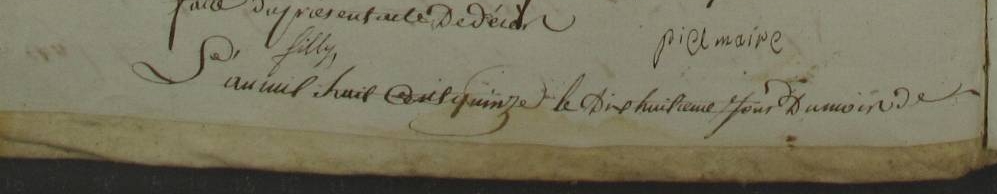 faite du présent acte De déces
filly, piel maire
L'an mil huit cent quinze le Dix huitieme Jour Du mois de